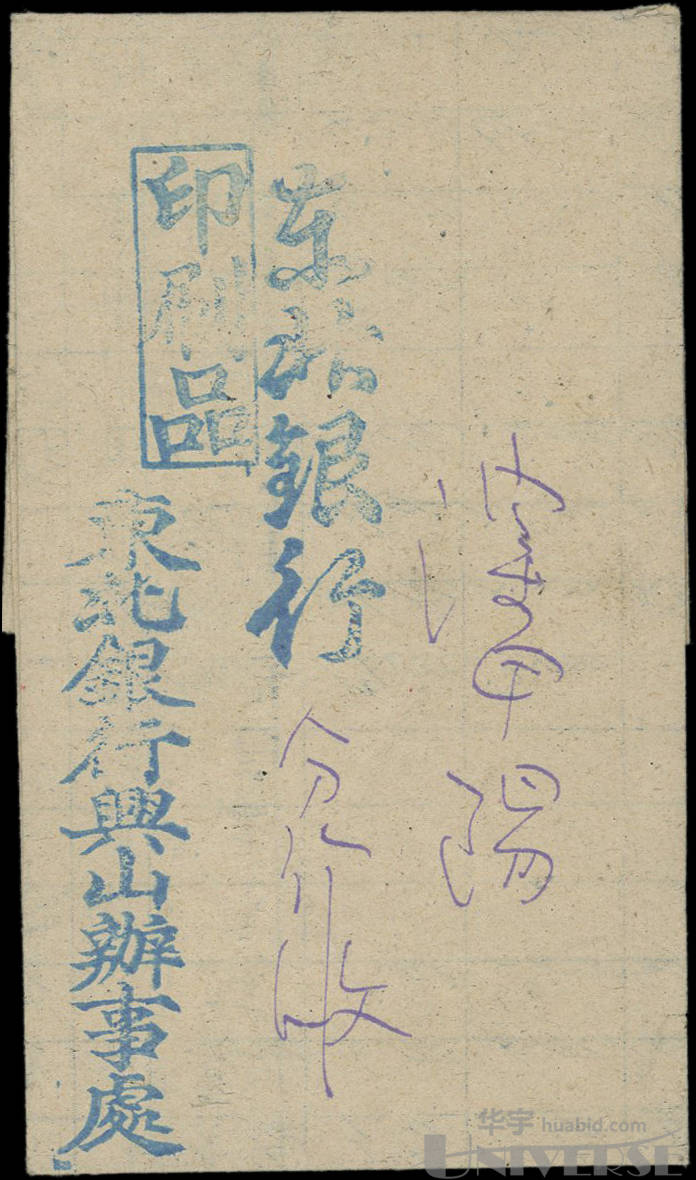 瀋陽
东北銀行分行收
印刷品
東北銀行興山辦事處
华宇 huabid.com
UNIVERSE